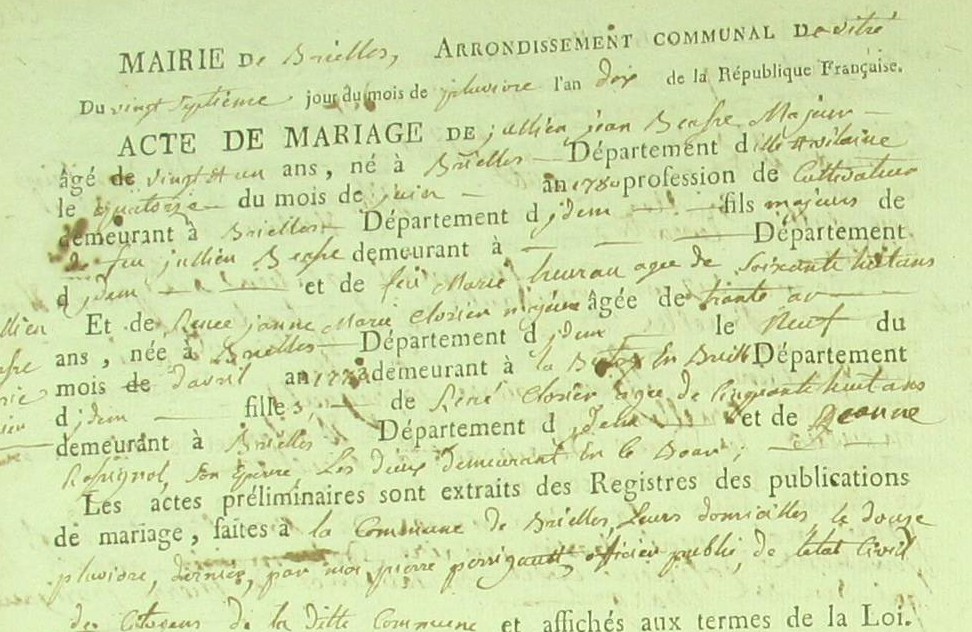 MAIRIE De Brielles, ARRONDISSEMENT COMMUNAL De vitré
Du vingt Septieme jour du mois de pluviore l'an dix de la République Française.
ACTE DE MARIAGE DE jullien jean Majeur
âgé de vingt et un ans, né à Brielles Département d'ille et vilaine
le quatorze du mois de juin an 1780 profession de Cultivateur
demeurant à Brielles Département d jdem fils majeurs de
feu jullien demeurant à Département
d jdem et de feu Marie agee de Soixante huit ans
Et de Renee janne Marie Closier majeure âgée de trante
ans, née à Brielles Département d jdem le Neuf du
mois de d'avril an demeurant à la En Brielles Département
d jdem fille de René Closier agee de Cinquante huit ans
demeurant à Brielles Département d jdem et de Jeanne
Rossignol, Son Epouse Les deux demeurant En le Bourg;
Les actes préliminaires sont extraits des Registres des publications
de mariage, faites à la Commune de Brielles, Leurs domicilles, le douze
pluviore, dernier, par moi pierre perrigault officier public, de letat Civil
des Citoyens de la ditte Commune et affichés aux termes de la Loi.